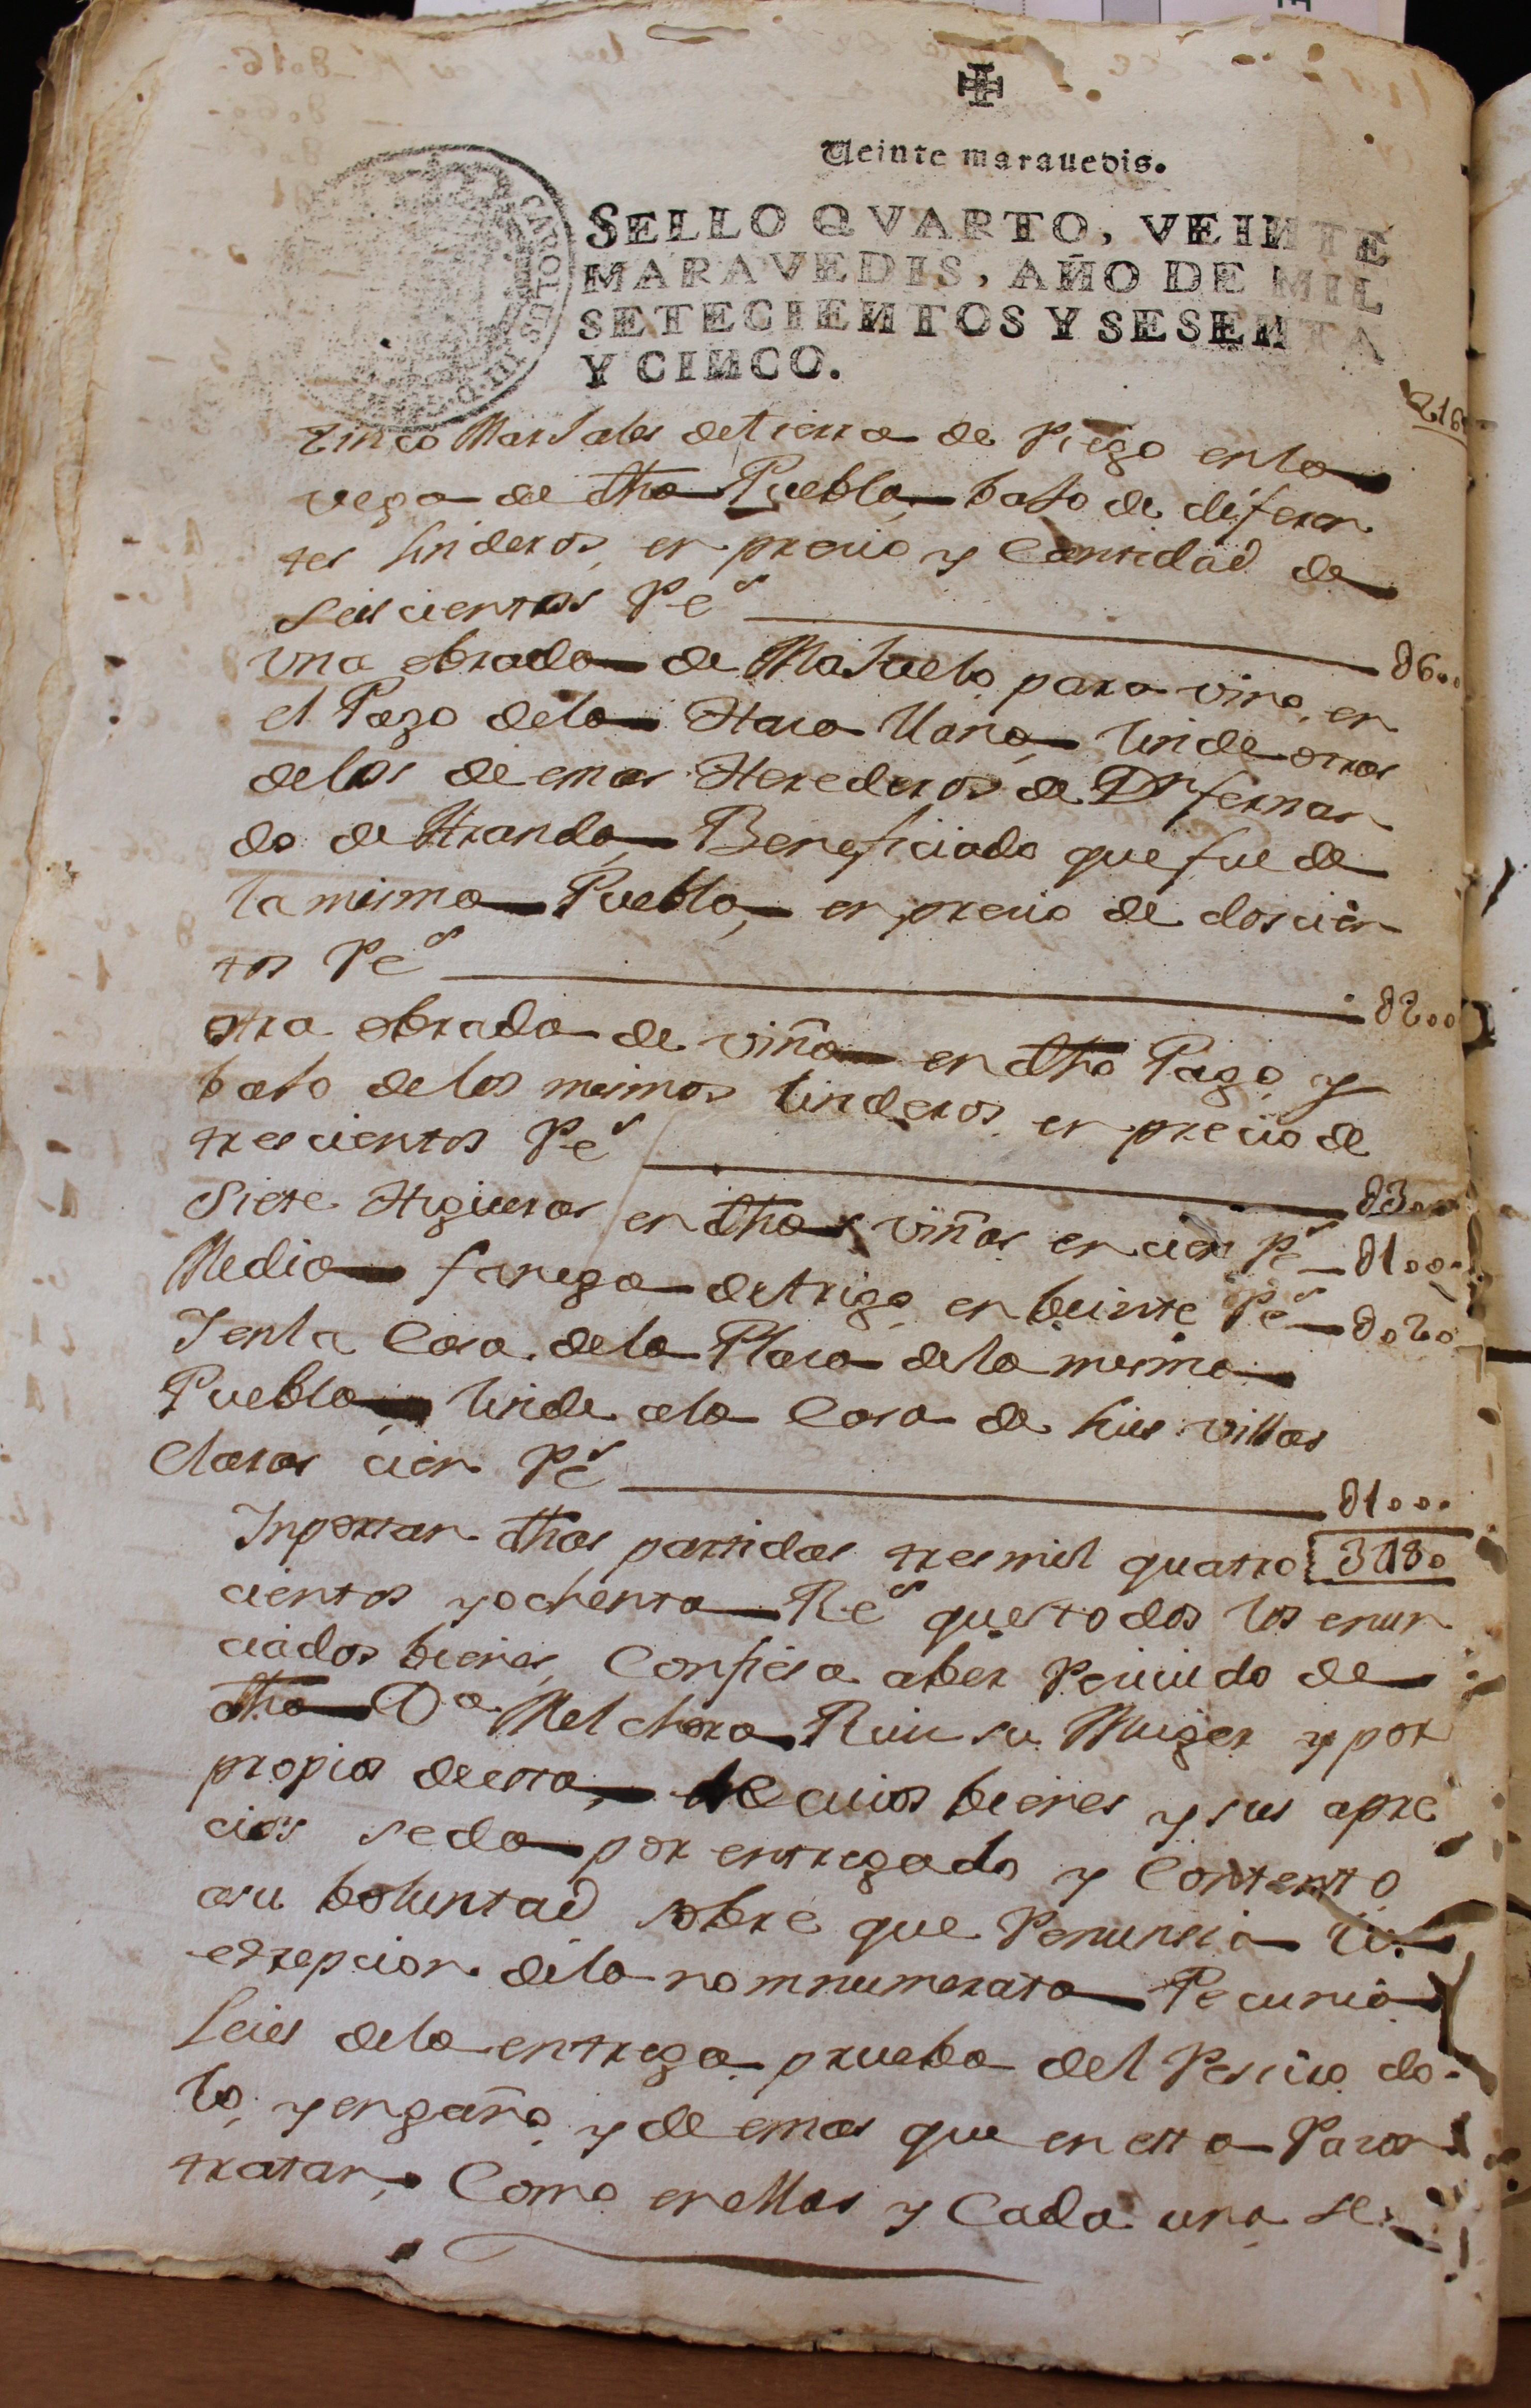 Veinte marauedis.
SELLO QVARTO, VEINTE
MARAVEDIS, AÑO DE MIL
SETECIENTOS Y SESENTA
Y CINCO.
Zinco Marjales de tierra de riego en la
vega de dha Puebla, bajo de diferen
tes linderos, en precio y Cantidad de
Seiscientos Rs 600
Una obrada de Majuelo para vino, en
el Pago dela Haza llana, linde otros
delos demas Herederos de Dn fernan
do de Aranda, Beneficiado que fue de
la misma Puebla, en precio de dozcien
tos Rs 200
otra obrada de viña en dho Pago, y
bajo delos mismos linderos, en precio de
trescientos Rs 300
Siete Higueras en dhas viñas en cien Rs 100
Media fanega de trigo, en beinte Rs 020
Y en la Casa dela Plaza dela misma
Puebla, linde ala Casa de Luis Villas
Claras cien Rs 100
Inportan dhas partidas tres mil quatro 3480
cientos y ochenta Rs que todos los enun
ciados bienes, Confiesa aber Reciuido de
dha Da Melchora Ruiz su Muger y por
propios de esta, de cuios bienes y sus apre
cios se da por entregado y Contento
asu boluntad sobre que Renuncia la
exsepcion dela nomnumerata Pecunia
Leies dela entrega prueba del Resciuo do
lo, y engaño, y demas que en esta Razon
tratan, Como en ellas y Cada una se